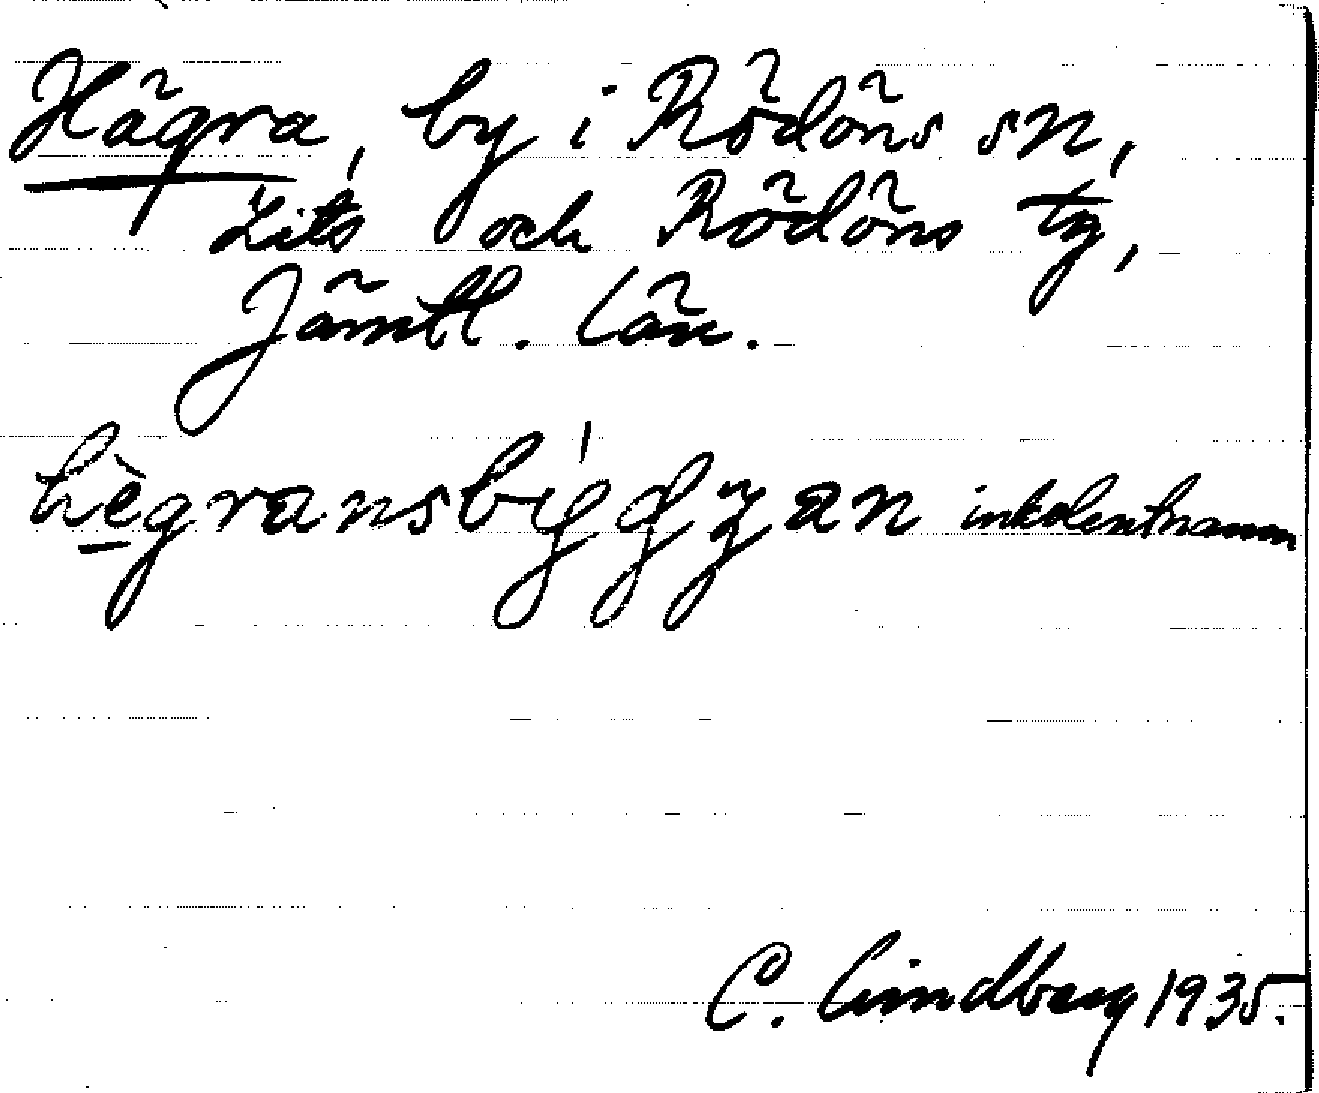 Hägra, by i Rödöns sn,
Lits och Rödöns tg,
Jämtl. län.
inkolentnamn
C. Lindberg 1935.